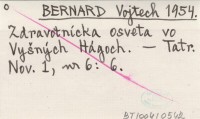 BERNARD Vojtech 1954.
Zdravotnícka osveta vo
Vyšných Hágoch. — Tatr.
Nov. 1, nr 6: 6.
BT100410542